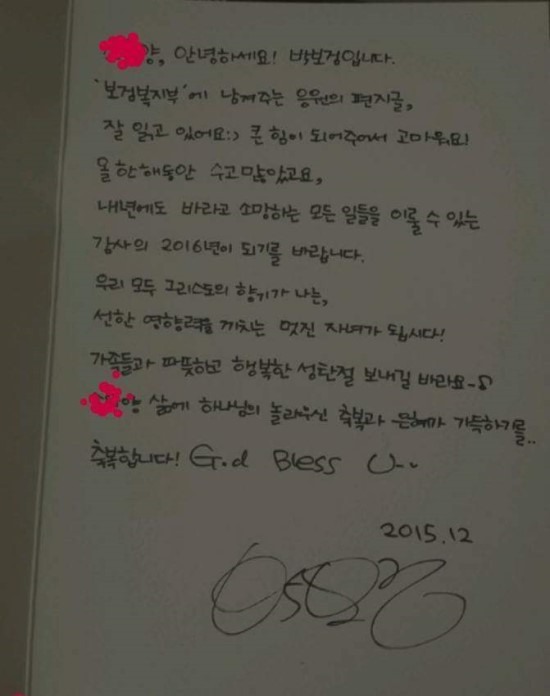 양, 안녕하세요! 박보검입니다.
'보검복지부'에 남겨주는 응원의 편지글,
잘 읽고 있어요:) 큰 힘이 되어주어서 고마워요!
올 한해동안 수고 많았고요,
내년에도 바라고 소망하는 모든 일들을 이룰 수 있는
감사의 2016년이 되기를 바랍니다.
우리 모두 그리스도의 향기가 나는,
선한 영향력을 끼치는 멋진 자녀가 됩시다!
가족들과 따뜻하고 행복한 성탄절 보내길 바라요~
양 삶에 하나님의 놀라우신 축복과 은혜가 가득하기를..
축복합니다! G.d Bless U..
2015.12